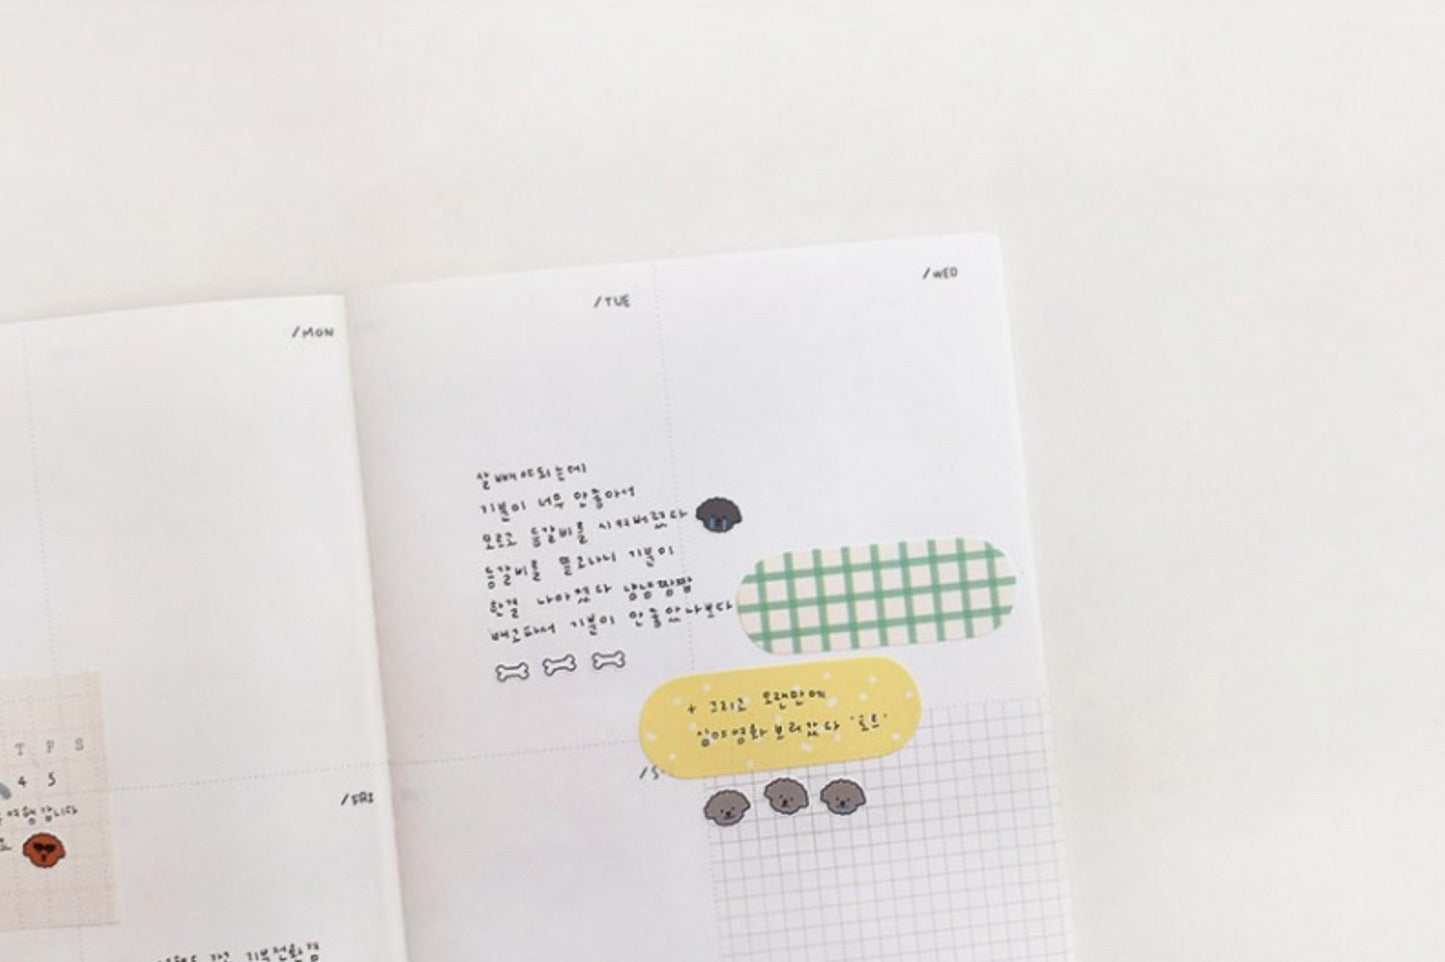 /MON
/TUE
/WED
살 빼야되는데
기분이 너무 안좋아서
모르고 등갈비를 시켜버렸다
등갈비를 뜯고나니 기분이
한결 나아졌다 냠냠짭짭
배고파서 기분이 안좋았나보다
+ 그리고 오랜만에
심야영화 보러갔다
T F S
4 5
여행갑니다
/FRI
/S
기분전환겸